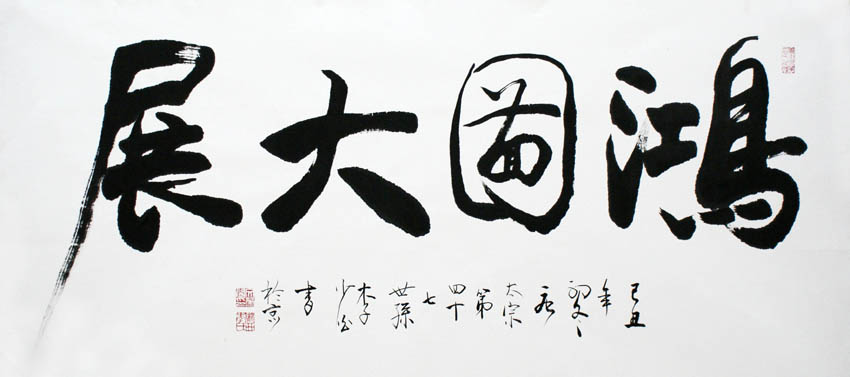 鴻圖大展
己丑年初冬唐太宗第四十七世孫李少白書於京